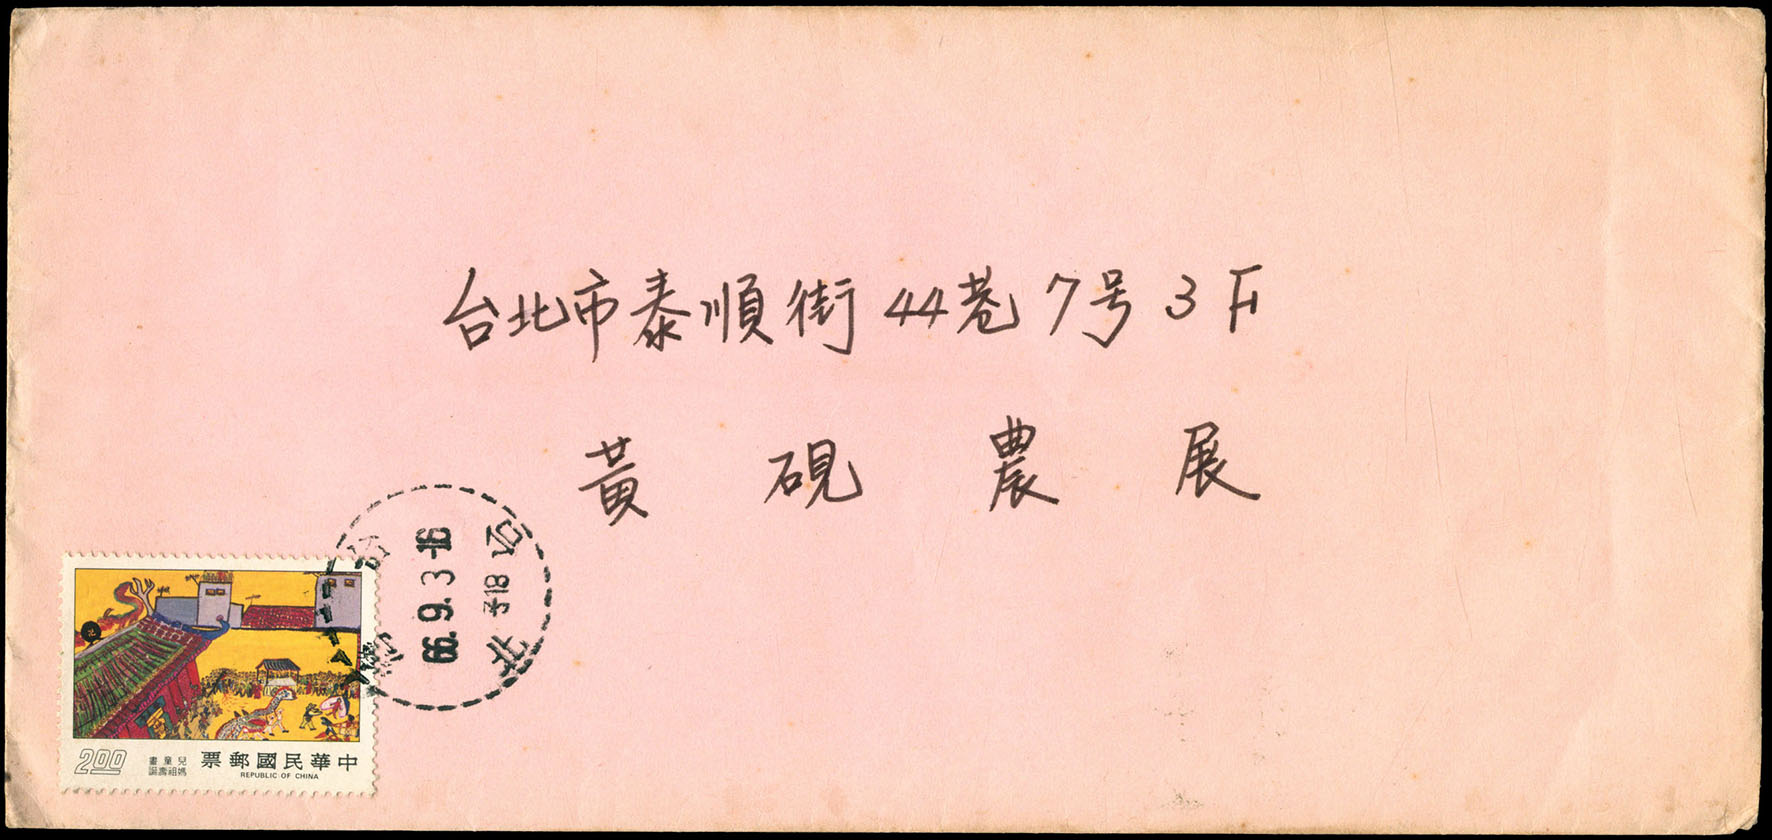 台北市泰順街44巷7号3F
黃硯農展
66.9.3-16
台
北
子18
2.00
兒童畫
媽祖壽誕
中華民國郵票
REPUBLIC OF CHINA